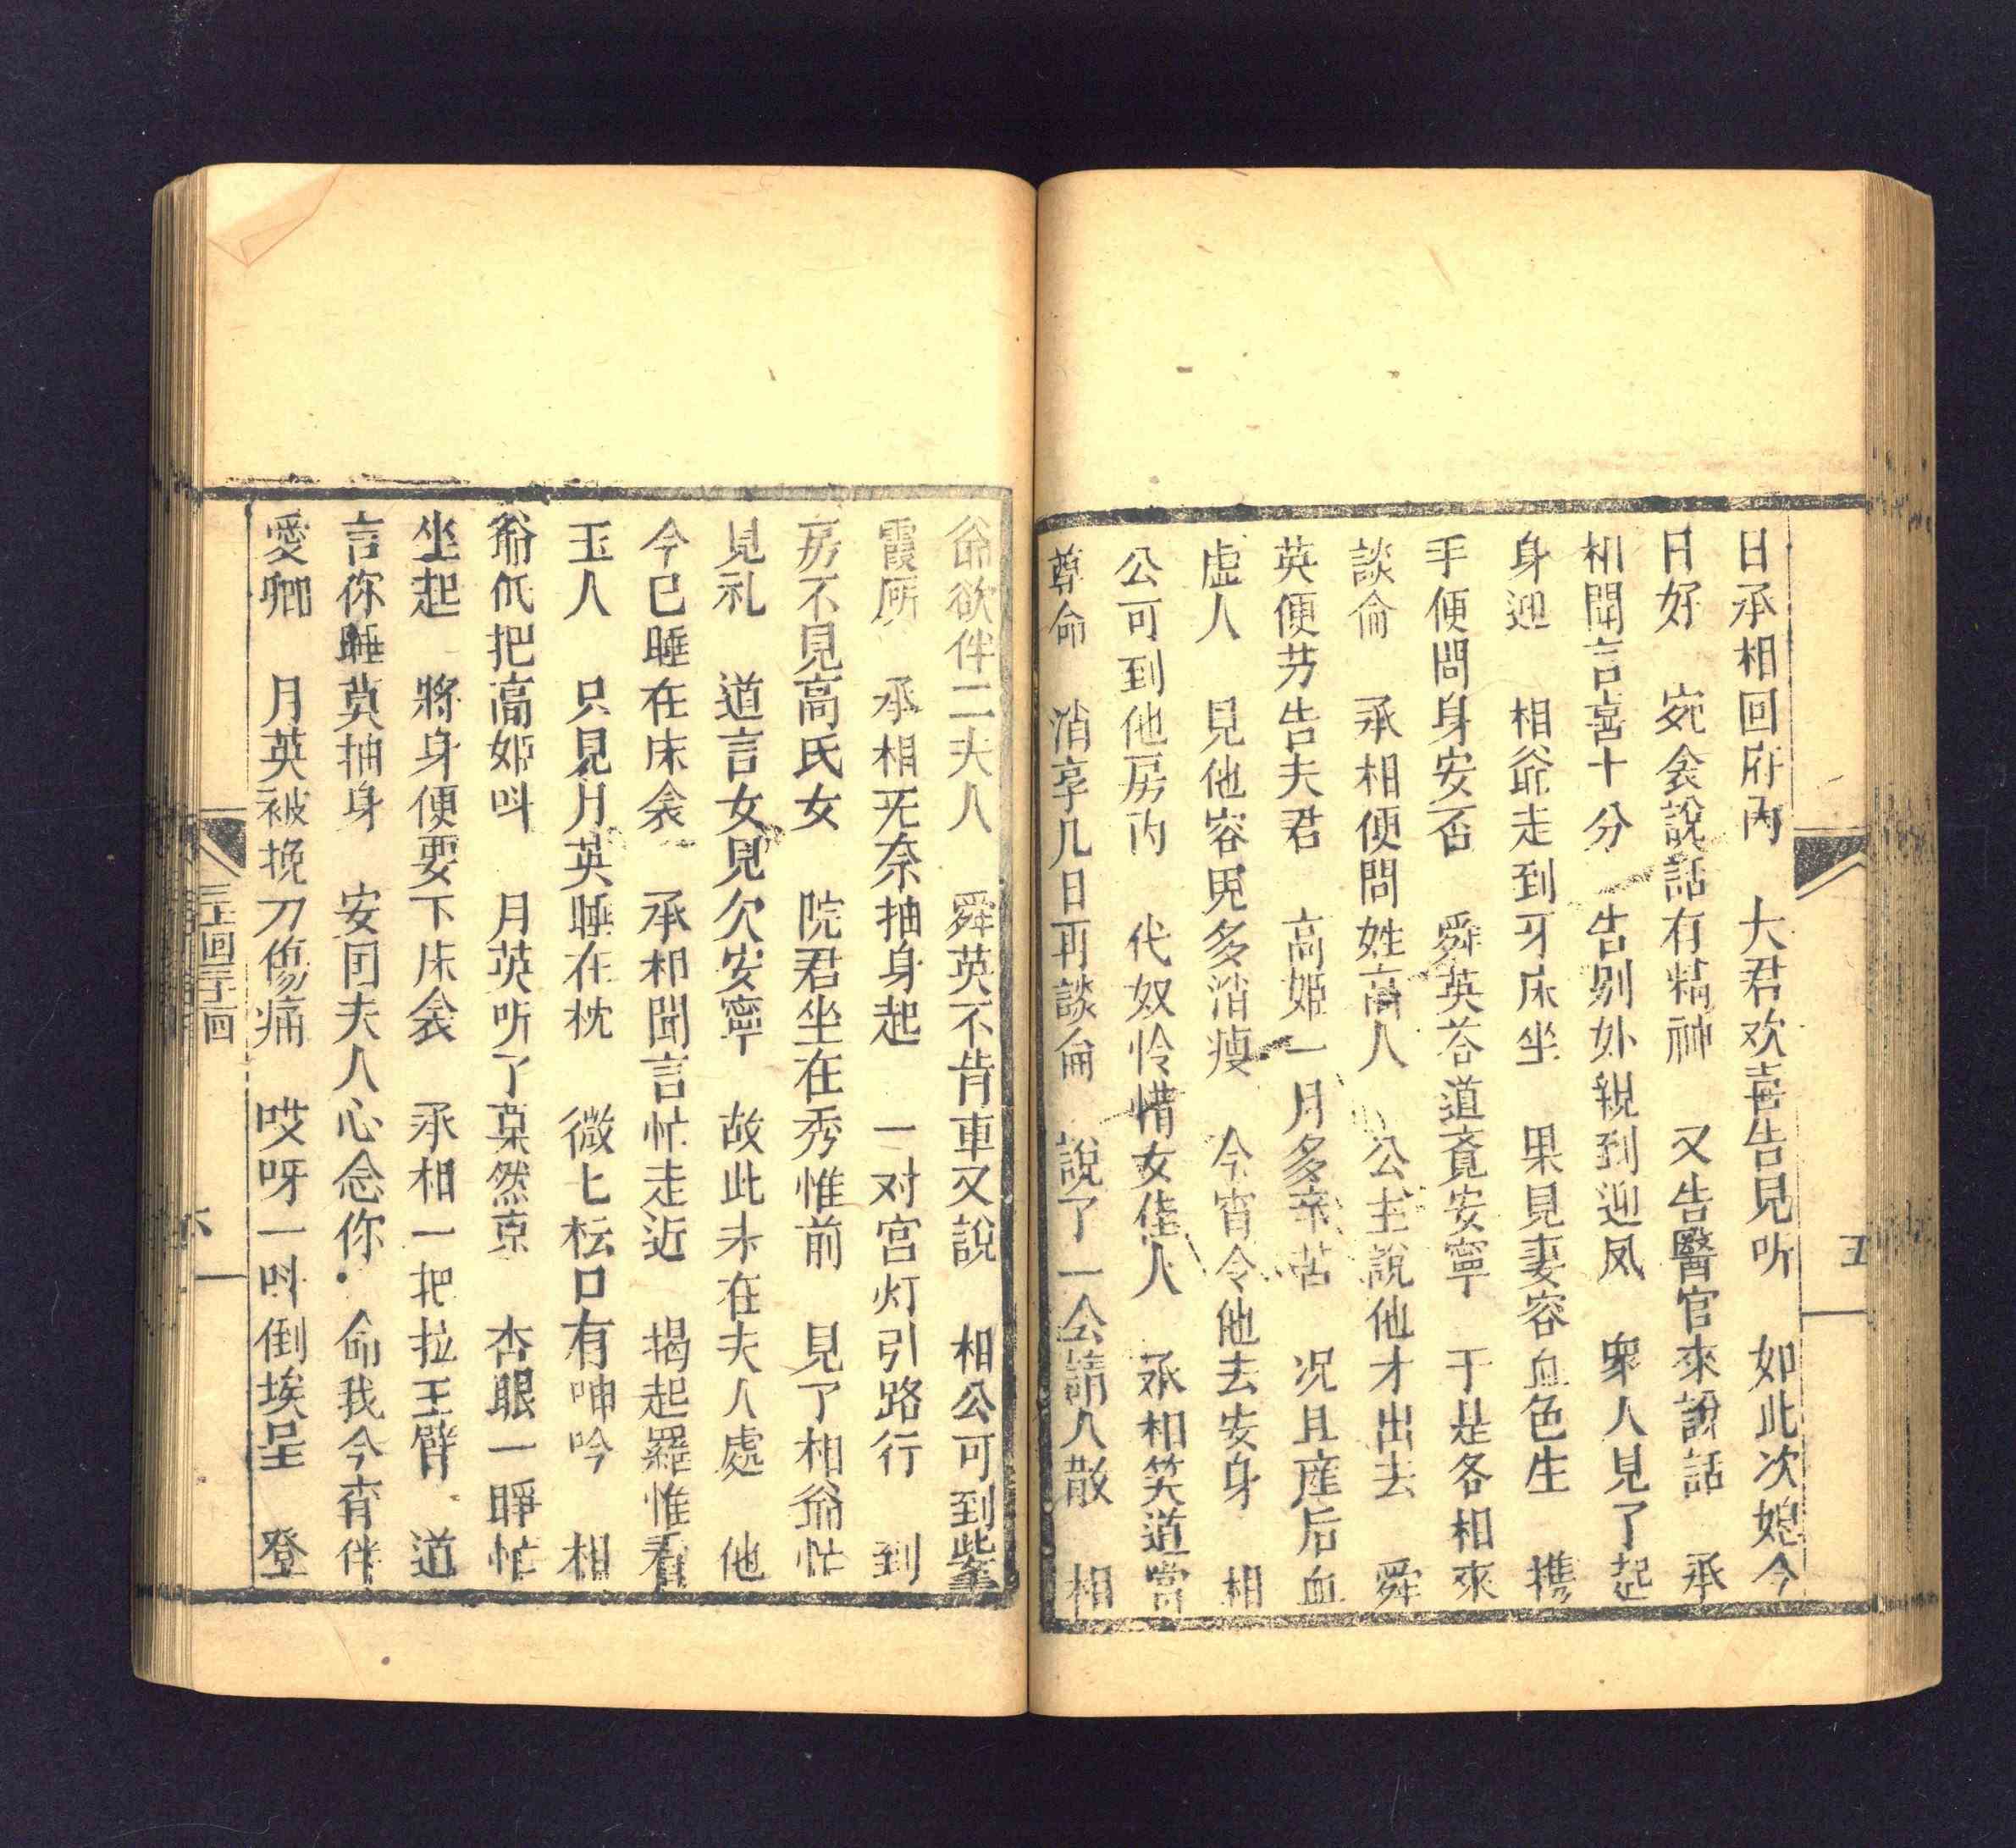 日承相回府內　大君欢喜告見听　如此次媳今
日好　宛会說話有精神　又告醫官來說話　承
相聞言喜十分　告別外親到迎凤　衆人見了起
身迎　相爺走到牙床坐　果見妻容血色生　携
手便問身安否　舜英荅道竟安寧　于是各相來
談侖　承相便問姓高人　公主說他才出去　舜
英便芳告夫君　高姬一月多辛苦　况且産后血
虛人　見他容皃多消瘦　今宵令他去安身　相
公可到他房內　代奴怜惜女佳人　承相笑道當
尊命　消享几日再談侖　說了一会請人散　相
五
爺欲伴二夫人　舜英不肯車又說　相公可到紫
霞所　承相无奈抽身起　一对宫灯引路行　到
房不見高氏女　院君坐在秀惟前　見了相爺忙
見礼　道言女見欠安寧　故此未在夫人處　他
今已睡在床衾　承相聞言忙走近　揭起羅惟看
玉人　只見月英睡在枕　微匕枟口有呻吟　相
爺低把高姬呌　月英听了葉然京　杏眼一睜忙
坐起　將身便要下床衾　承相一把拉玉臂　道
言你睡莫抽身　安囝夫人心念你　命我今宵伴
愛卿　月英被挽刀傷痛　哎呀一呌倒埃呈　登
三十回
六